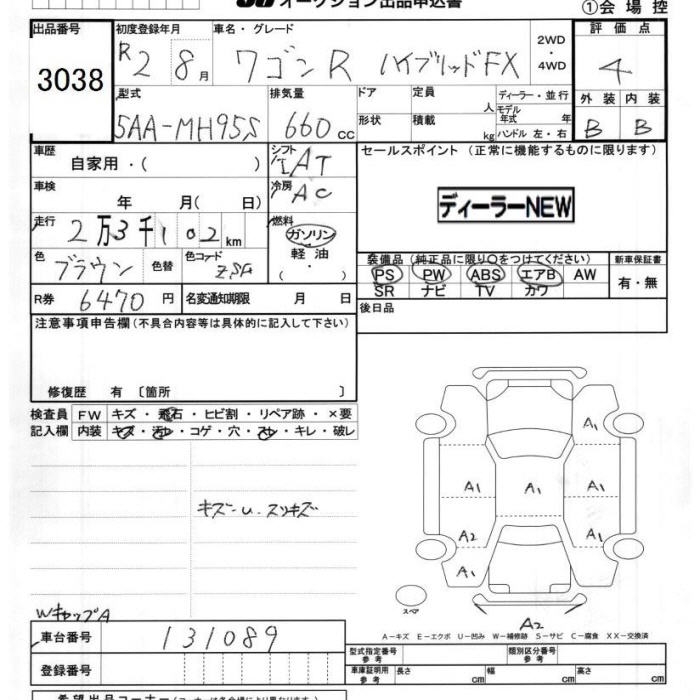 オークション出品申込書
①会場控
出品番号
3038
初度登録年月
R2 8月
車名・グレード
ワゴンR ハイブリッドFX
2WD
・
4WD
評価点
4
型式
5AA-MH95S
排気量
660 cc
ドア
形状
定員
人
積載
kg
ディーラー・並行
モデル年式 年
ハンドル 左・右
外装 内装
B B
車歴
自家用・( )
シフト
IAT
セールスポイント (正常に機能するものに限ります)
ディーラーNEW
車検
年 月( 日)
冷房
AC
走行
2万3千102km
燃料
ガソリン
軽油
( ・ )
色
ブラウン
色替
色コード
ZSA
装備品(純正品に限り○をつけてください)
PS PW ABS エアB AW
SR ナビ TV カワ
新車保証書
有・無
R券
6470円
名変通知期限 月 日
後日品
注意事項申告欄(不具合内容等は具体的に記入して下さい)
修復歴 有 〔箇所 〕
検査員 FW キズ・飛石・ヒビ割・リペア跡・×要
記入欄 内装 キズ・汚レ・コゲ・穴・スレ・キレ・破レ
キズ-U. スリキズ
WキャップA
A1
A1 A1 A1
A2 A1
A1
スペア
A2
A-キズ E-エクボ U-凹み W-補修跡 S-サビ C-腐食 XX-交換済
車台番号
131089
登録番号
型式指定番号
参考
類別区分番号
参考
車庫証明用
参考
長さ cm 幅 cm 高さ cm
希望出品コーナー